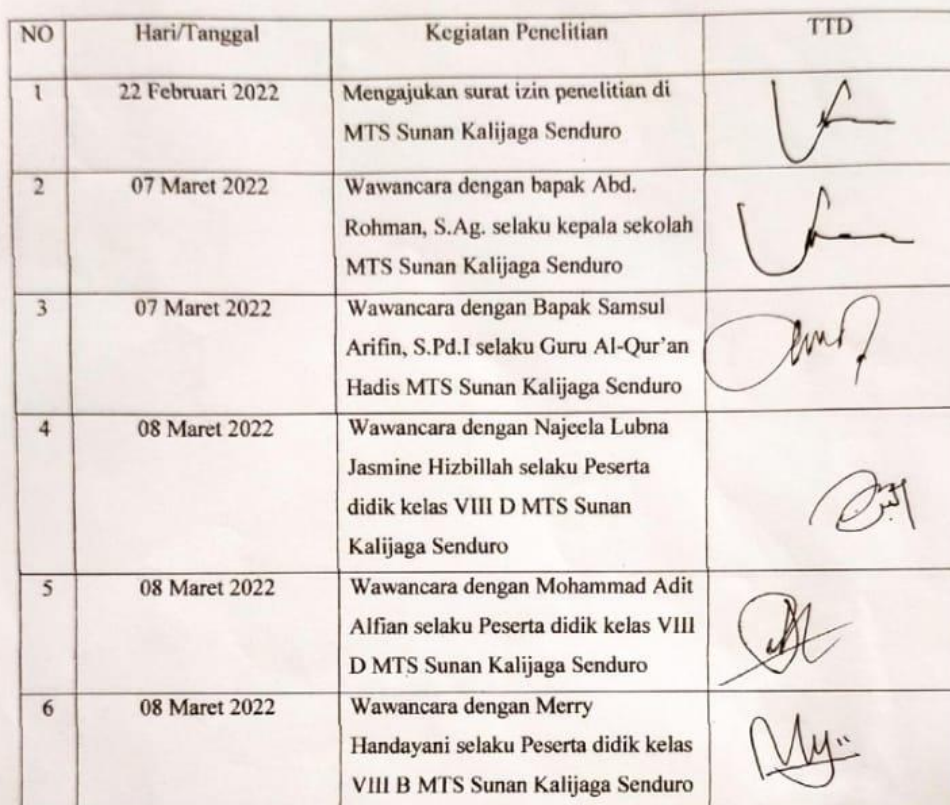 NO Hari/Tanggal Kegiatan Penelitian TTD
1 22 Februari 2022 Mengajukan surat izin penelitian di
MTS Sunan Kalijaga Senduro
2 07 Maret 2022 Wawancara dengan bapak Abd.
Rohman, S.Ag. selaku kepala sekolah
MTS Sunan Kalijaga Senduro
3 07 Maret 2022 Wawancara dengan Bapak Samsul
Arifin, S.Pd.I selaku Guru Al-Qur'an
Hadis MTS Sunan Kalijaga Senduro
4 08 Maret 2022 Wawancara dengan Najeela Lubna
Jasmine Hizbillah selaku Peserta
didik kelas VIII D MTS Sunan
Kalijaga Senduro
5 08 Maret 2022 Wawancara dengan Mohammad Adit
Alfian selaku Peserta didik kelas VIII
D MTS Sunan Kalijaga Senduro
6 08 Maret 2022 Wawancara dengan Merry
Handayani selaku Peserta didik kelas
VIII B MTS Sunan Kalijaga Senduro